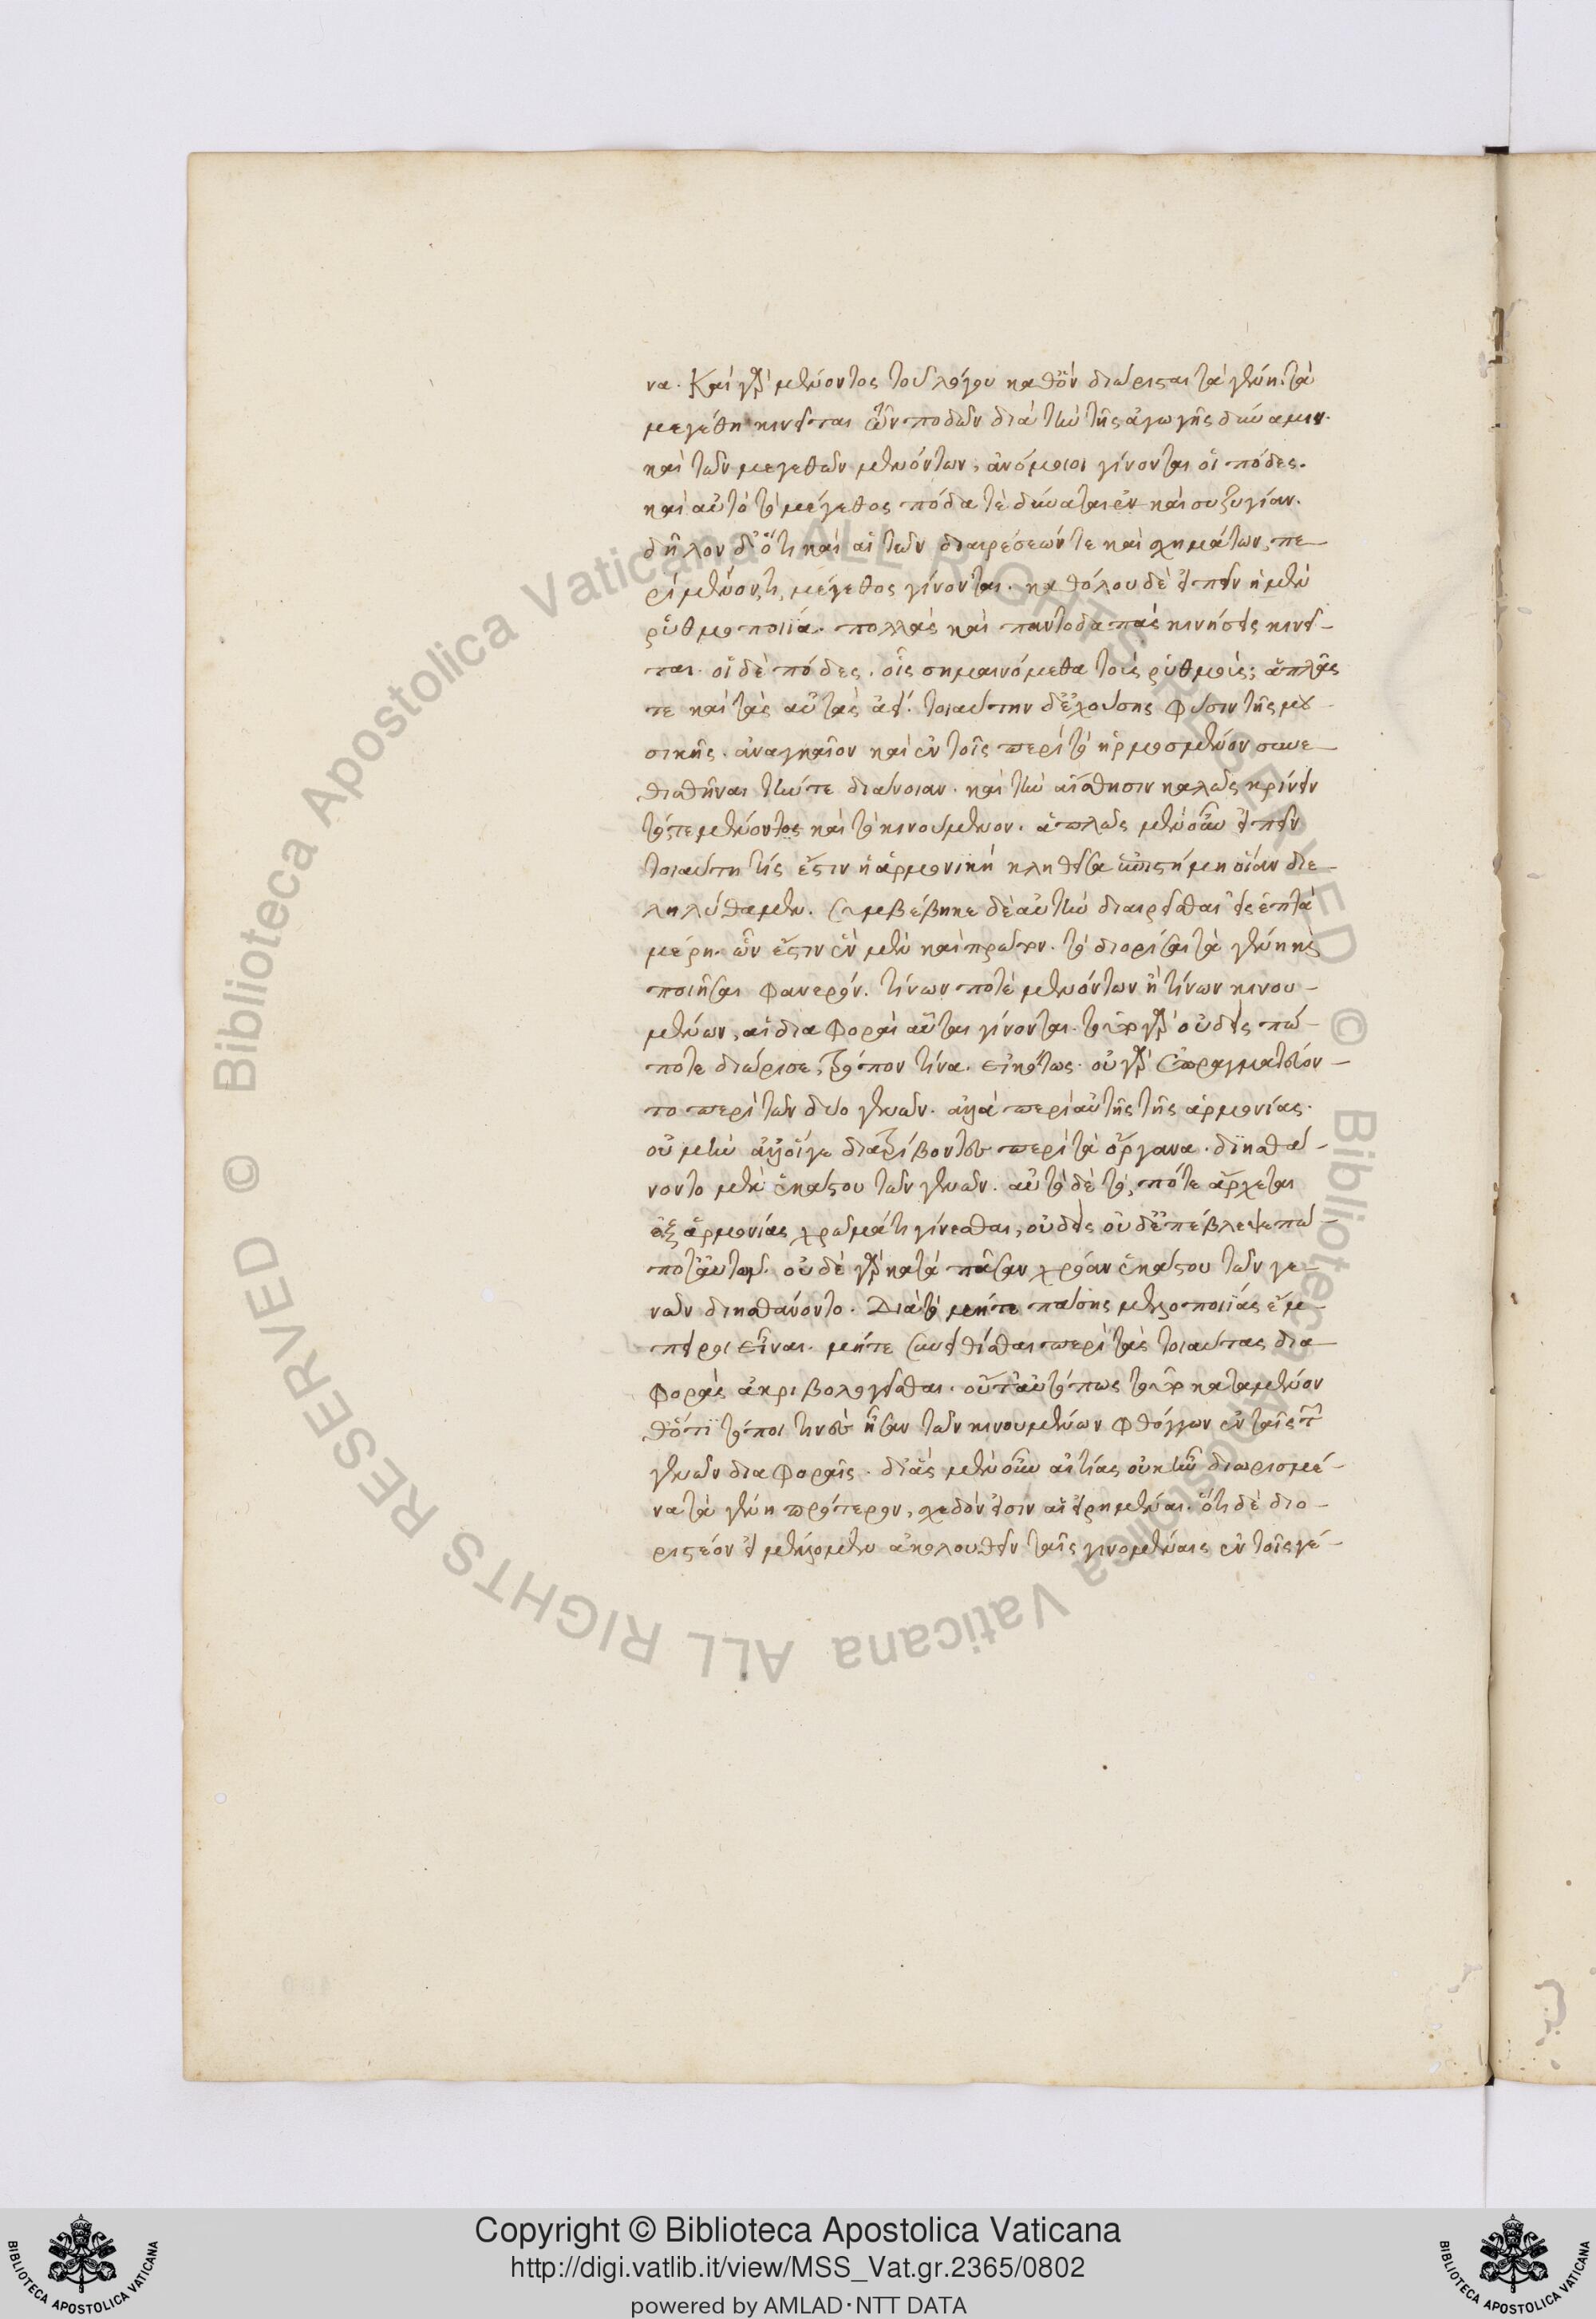 να. Καὶ γὰρ μένοντος τοῦ λόγου καθ' ὃν διώρισται τὰ γένη. τὰ
μεγέθη κινεῖται τῶν ποδῶν διὰ τὴν τῆς ἀγωγῆς δύναμιν.
καὶ τῶν μεγεθῶν μενόντων, ἀνόμοιοι γίνονται οἱ πόδες.
καὶ αὐτὸ τὸ μέγεθος πόδα τὲ δύναται ἓν καὶ συζυγίαν.
δῆλον δ' ὅτι καὶ αἱ τῶν διαιρέσεών τε καὶ σχημάτων, πε
ρὶ μένον τι μέγεθος γίνονται. καθόλου δὲ εἰπεῖν ἡ μὲν
ῥυθμοποιΐα. πολλὰς καὶ παντοδαπὰς κινήσεις κινεῖ-
ται. οἱ δὲ πόδες. οἷς σημαινόμεθα τοὺς ῥυθμούς; ἁπλᾶς
τε καὶ τὰς αὐτὰς ἀεί. τοιαύτην δ' ἐχούσης φύσιν τῆς μου-
σικῆς. ἀναγκαῖον καὶ ἐν τοῖς περὶ τὸ ἡρμοσμένον συνε
θισθῆναι τήν τε διάνοιαν. καὶ τὴν αἴσθησιν καλῶς κρίνειν
τό τε μένοντος καὶ τὸ κινούμενον. ἁπλῶς μὲν οὖν εἰπεῖν
τοιαύτη τίς ἔστιν ἡ ἁρμονικὴ κληθεῖσα ἐπιστήμη οἵαν διε
ληλύθαμεν. συμβέβηκε δὲ αὐτὴν διαιρεῖσθαι εἰς ἑπτὰ
μέρη. ὧν ἔστιν ἓν μὲν καὶ πρῶτον. τὸ διορίσαι τὰ γένη καὶ
ποιῆσαι φανερόν. τίνων ποτὲ μενόντων ἢ τίνων κινου-
μένων, αἱ διαφοραὶ αὗται γίνονται. τοῦτο γὰρ οὐδεὶς πώ-
ποτε διώρισε, τρόπον τινα. εἰκότως. οὐ γὰρ ἐπραγματεύον-
το περὶ τῶν δύο γενῶν. ἀλλὰ περὶ αὐτῆς τῆς ἁρμονίας.
οὐ μὴν ἀλλ' οἵγε διατρίβοντες περὶ τὰ ὄργανα. διῃσθά-
νοντο μὲν ἑκάστου τῶν γενῶν. αὐτὸ δὲ τὸ, πότε ἄρχεται
ἐξ ἁρμονίας χρῶμά τι γίνεσθαι, οὐδεὶς οὐδ' ἐπέβλεψε πώ-
ποτ' αὐτῶν. οὐδὲ γὰρ κατὰ πᾶσαν χρόαν ἑκάστου τῶν γε
νῶν διῃσθάνοντο. Διὰ τὸ μήτε πάσης μελοποιΐας ἔμ
πειροι εἶναι. μήτε συνειθίσθαι περὶ τὰς τοιαύτας δια
φορὰς ἀκριβολογεῖσθαι. οὔτ' αὐτό πως τοῦτο κατέμενον
θ' ὅτι τόποι τινὲς ἦσαν τῶν κινουμένων φθόγγων ἐν ταῖς τῶν
γενῶν διαφοραῖς. δι' ἃς μὲν οὖν αἰτίας οὐκ ἦν διωρισμέ-
να τὰ γένη πρότερον, σχεδὸν εἰσιν αἱ εἰρημέναι. ὅτι δὲ διο-
ριστέον εἰ μέλλομεν ἀκολουθεῖν ταῖς γινομέναις ἐν τοῖς γέ-
Copyright © Biblioteca Apostolica Vaticana
http://digi.vatlib.it/view/MSS_Vat.gr.2365/0802
powered by AMLAD·NTT DATA